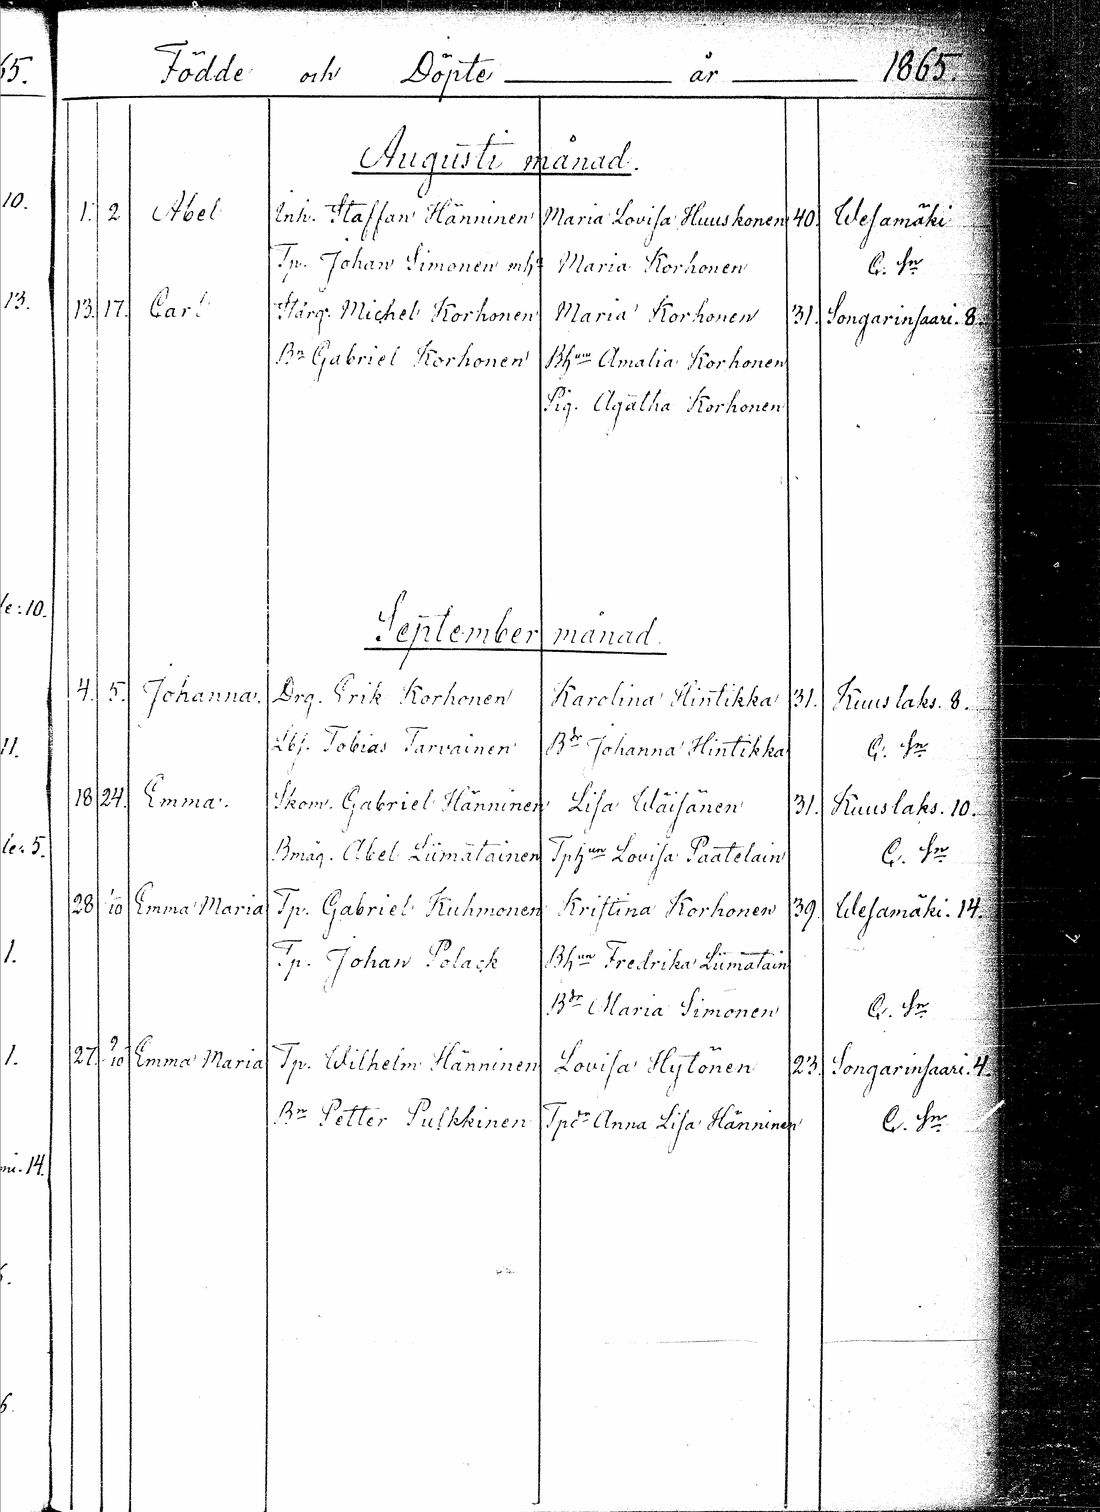 65.
Födde och Döpte år 1865.
Augusti månad.
10.
1. 2 Abel Inh. Staffan Hänninen Maria Lovisa Huuskonen 40. Wesamäki
Tp. Johan Simonen mh Maria Korhonen C. Sn
13.
13. 17. Carl Stärg. Michel Korhonen Maria Korhonen 31. Songarinsaari. 8.
Bn Gabriel Korhonen Bhun Amalia Korhonen
Pig. Agatha Korhonen
le: 10.
September månad.
4. 5. Johanna. Drg. Erik Korhonen Karolina Hintikka 31. Kuuslaks. 8.
11.
Lbf. Tobias Tarvainen Bdr Johanna Hintikka C. Sn
18 24. Emma. Skom. Gabriel Hänninen Lisa Wäisänen 31. Kuuslaks. 10.
le: 5.
Bmåg. Abel Liimatainen Tphun Lovisa Paatelain C. Sn
28 1/10 Emma Maria Tp. Gabriel Kuhmonen Kristina Korhonen 39. Wesamäki. 14.
1.
Tp. Johan Polack Bhun Fredrika Liimatain
Bdr Maria Simonen C. Sn
1.
27. 9/10 Emma Maria Tp. Wilhelm Hänninen Lovisa Hytönen 23. Songarinsaari. 4.
Bn Petter Pulkkinen Tpdr Anna Lisa Hänninen C. Sn
mi. 14.
6.